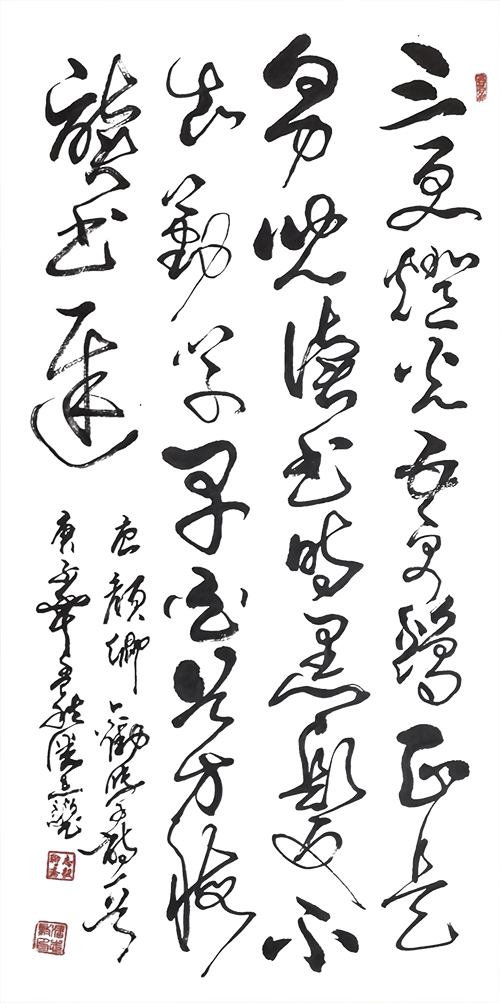 三更燈火五更鷄正是
男兒讀書時黑髮不
知勤學早白首方悔
讀書遲
唐顏卿勸學詩一首
庚子年